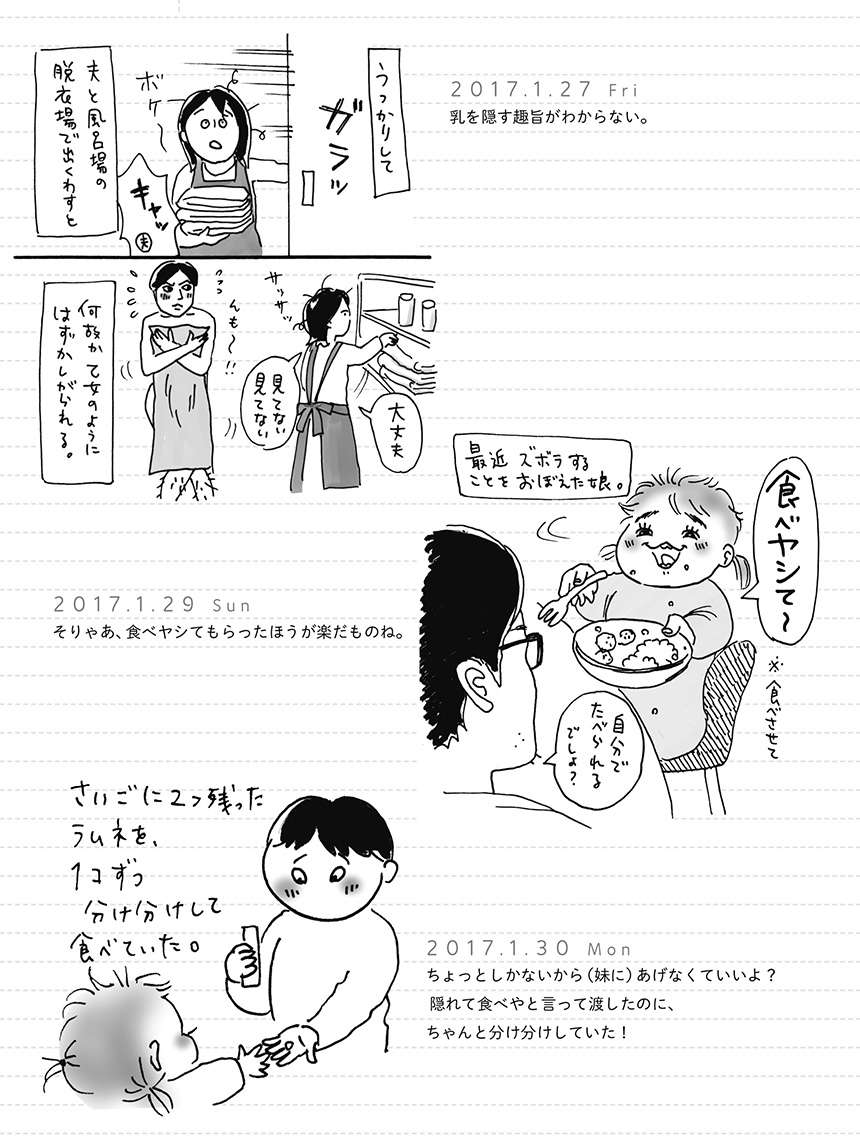 2017.1.27 Fri
乳を隠す趣旨がわからない。
うっかりして
ガラッ
ボケ〜
夫と風呂場の
脱衣場で出くわすと
キャッ
夫
サッサッ
大丈夫
見てない
見てない
んも〜!!
何故か乙女のように
はずかしがられる。
最近ズボラする
ことをおぼえた娘。
食べヤシて〜
※食べさせて
自分で
たべられる
でしょ?
2017.1.29 Sun
そりゃあ、食べヤシてもらったほうが楽だものね。
さいごに2つ残った
ラムネを、
1コずつ
分け分けして
食べていた。
2017.1.30 Mon
ちょっとしかないから(妹に)あげなくていいよ?
隠れて食べやと言って渡したのに、
ちゃんと分け分けしていた!